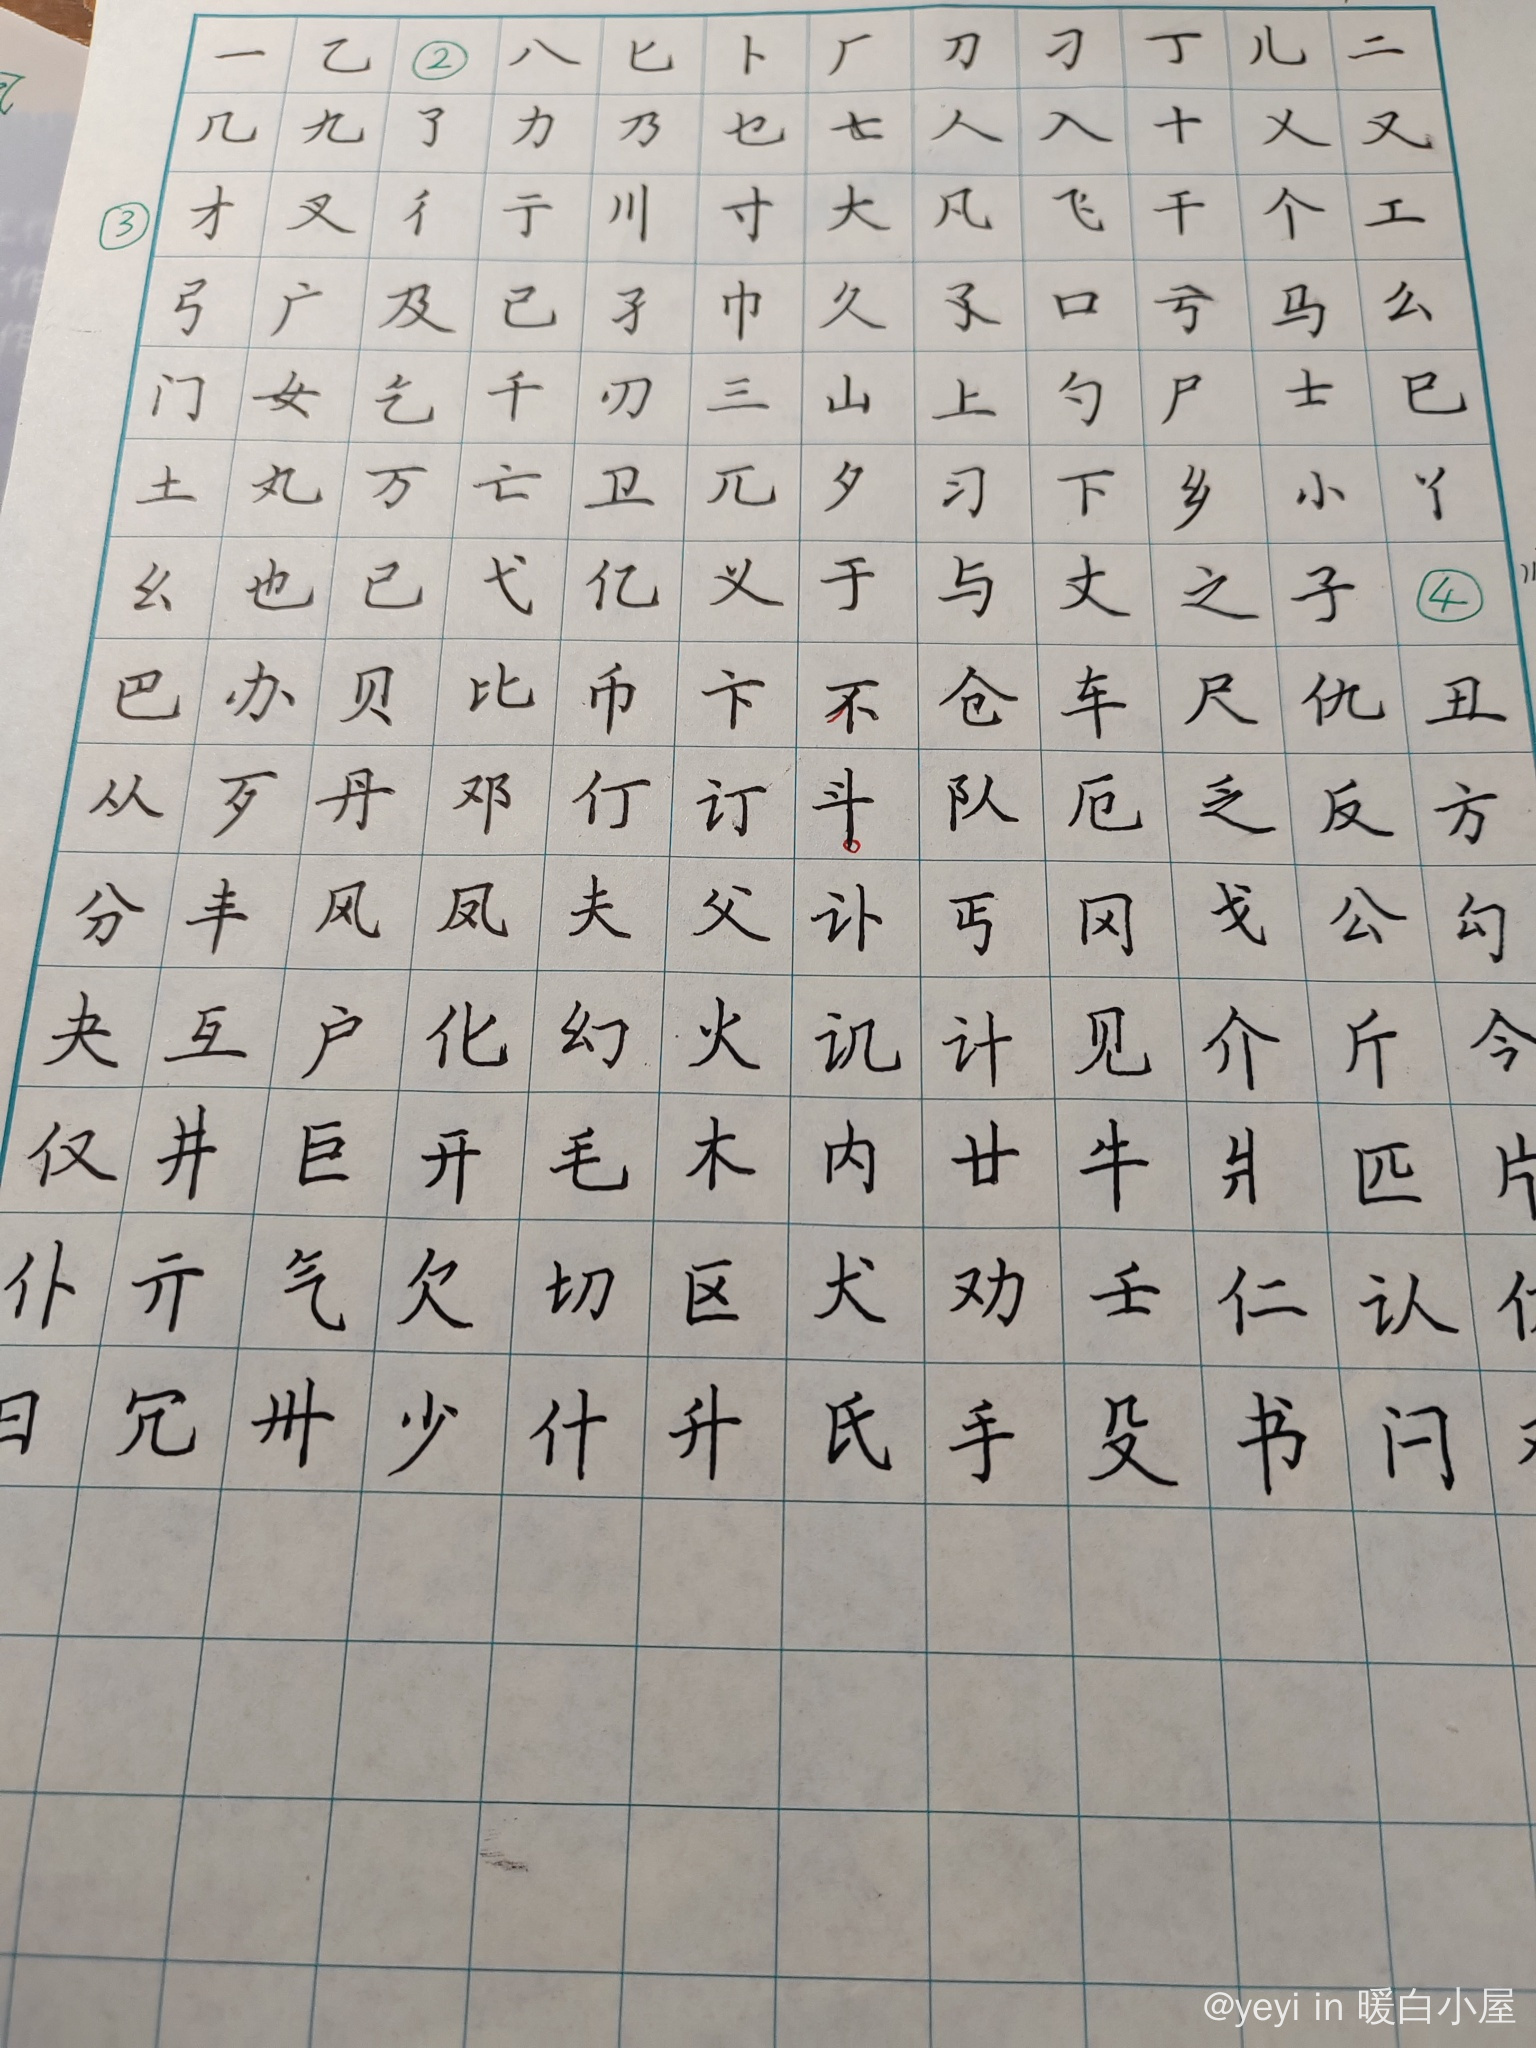 一 乙 ② 八 匕 卜 厂 刀 刁 丁 儿 二
几 九 了 力 乃 乜 七 人 入 十 乂 又
③ 才 叉 彳 亍 川 寸 大 凡 飞 干 个 工
弓 广 及 己 孑 巾 久 孓 口 亏 马 么
门 女 乞 千 刃 三 山 上 勺 尸 士 巳
土 丸 万 亡 卫 兀 夕 习 下 乡 小 丫
幺 也 已 弋 亿 义 于 与 丈 之 子 ④
巴 办 贝 比 币 卞 不 仓 车 尺 仇 丑
从 歹 丹 邓 仃 订 斗 队 厄 乏 反 方
分 丰 风 凤 夫 父 讣 丐 冈 戈 公 勾
夬 互 户 化 幻 火 讥 计 见 介 斤 今
仅 井 巨 开 毛 木 内 廿 牛 爿 匹 片
仆 亓 气 欠 切 区 犬 劝 壬 仁 认
日 冗 卅 少 什 升 氏 手 殳 书 闩
@yeyi in 暖白小屋